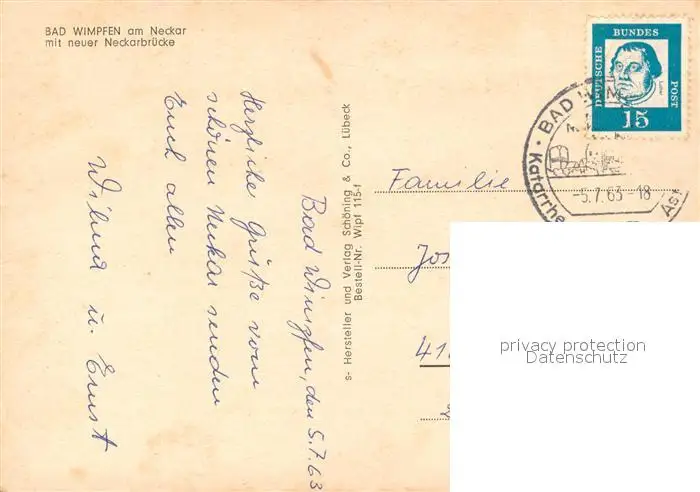 BAD WIMPFEN am Neckar
mit neuer Neckarbrücke
Bad Wimpfen, den 5.7.63
Herzliche Grüße vom
schönen Neckar senden
Euch allen
Wilma u. Ernst
s- Hersteller und Verlag Schöning & Co., Lübeck
Bestell-Nr. Wipf 115-f
DEUTSCHE BUNDES POST
Luther
15
BAD
-5.7.63-18
Katarrhe
Familie
Jos
41
privacy protection
Datenschutz